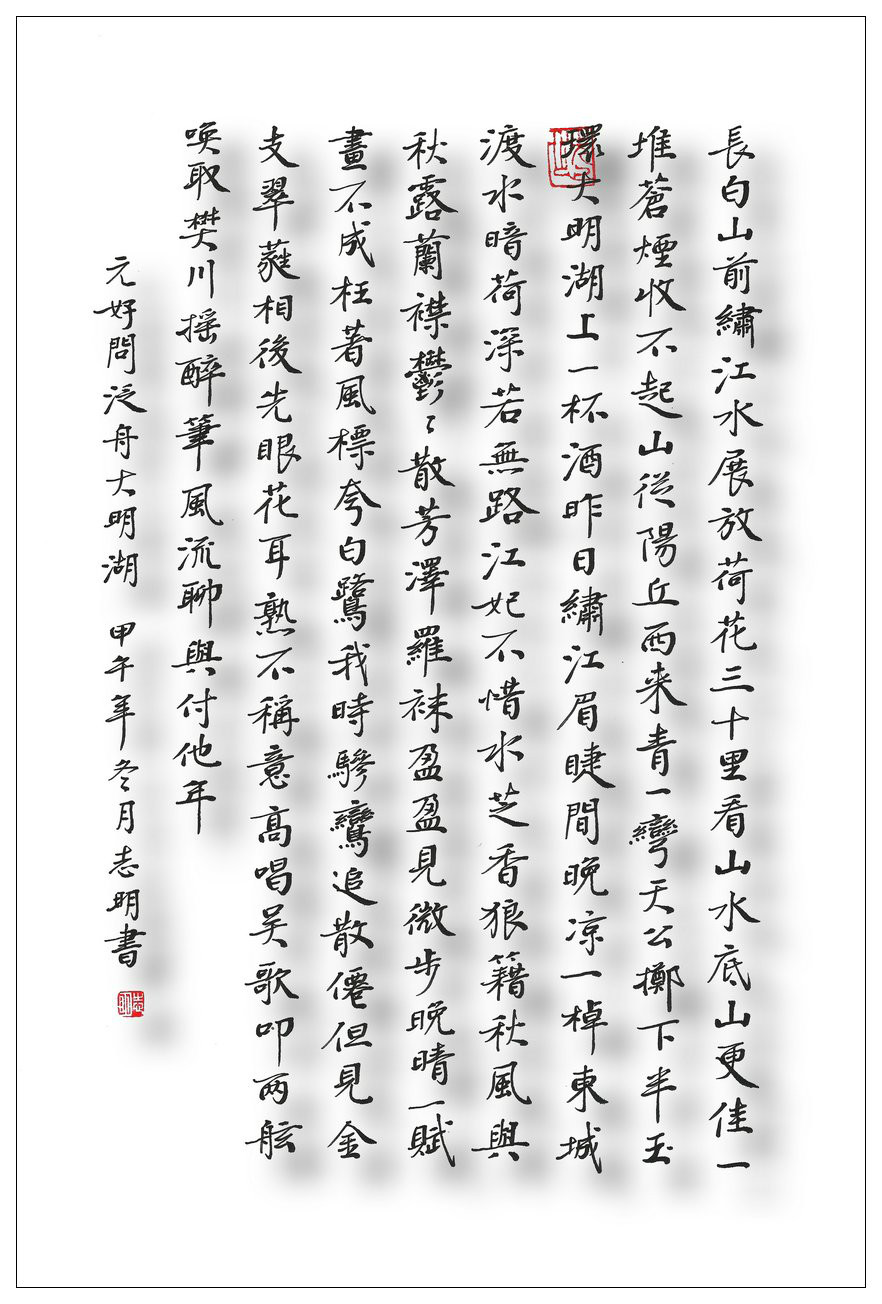 長白山前繡江水展放荷花三十里看山水底山更佳一
堆蒼煙收不起山從陽丘西来青一彎天公擲下半玉
環大明湖上一杯酒昨日繡江眉睫間晚凉一棹東城
渡水暗荷深若無路江妃不惜水芝香狼籍秋風與
秋露蘭襟鬱〻散芳澤羅袜盈盈見微步晚晴一賦
畫不成枉著風標夸白鷺我時驂鸞追散僊但見金
支翠蕤相後先眼花耳熟不稱意高唱吴歌叩两舷
唤取樊川摇醉筆風流聊與付他年
元好問泛舟大明湖 甲午年冬月志明書
志明